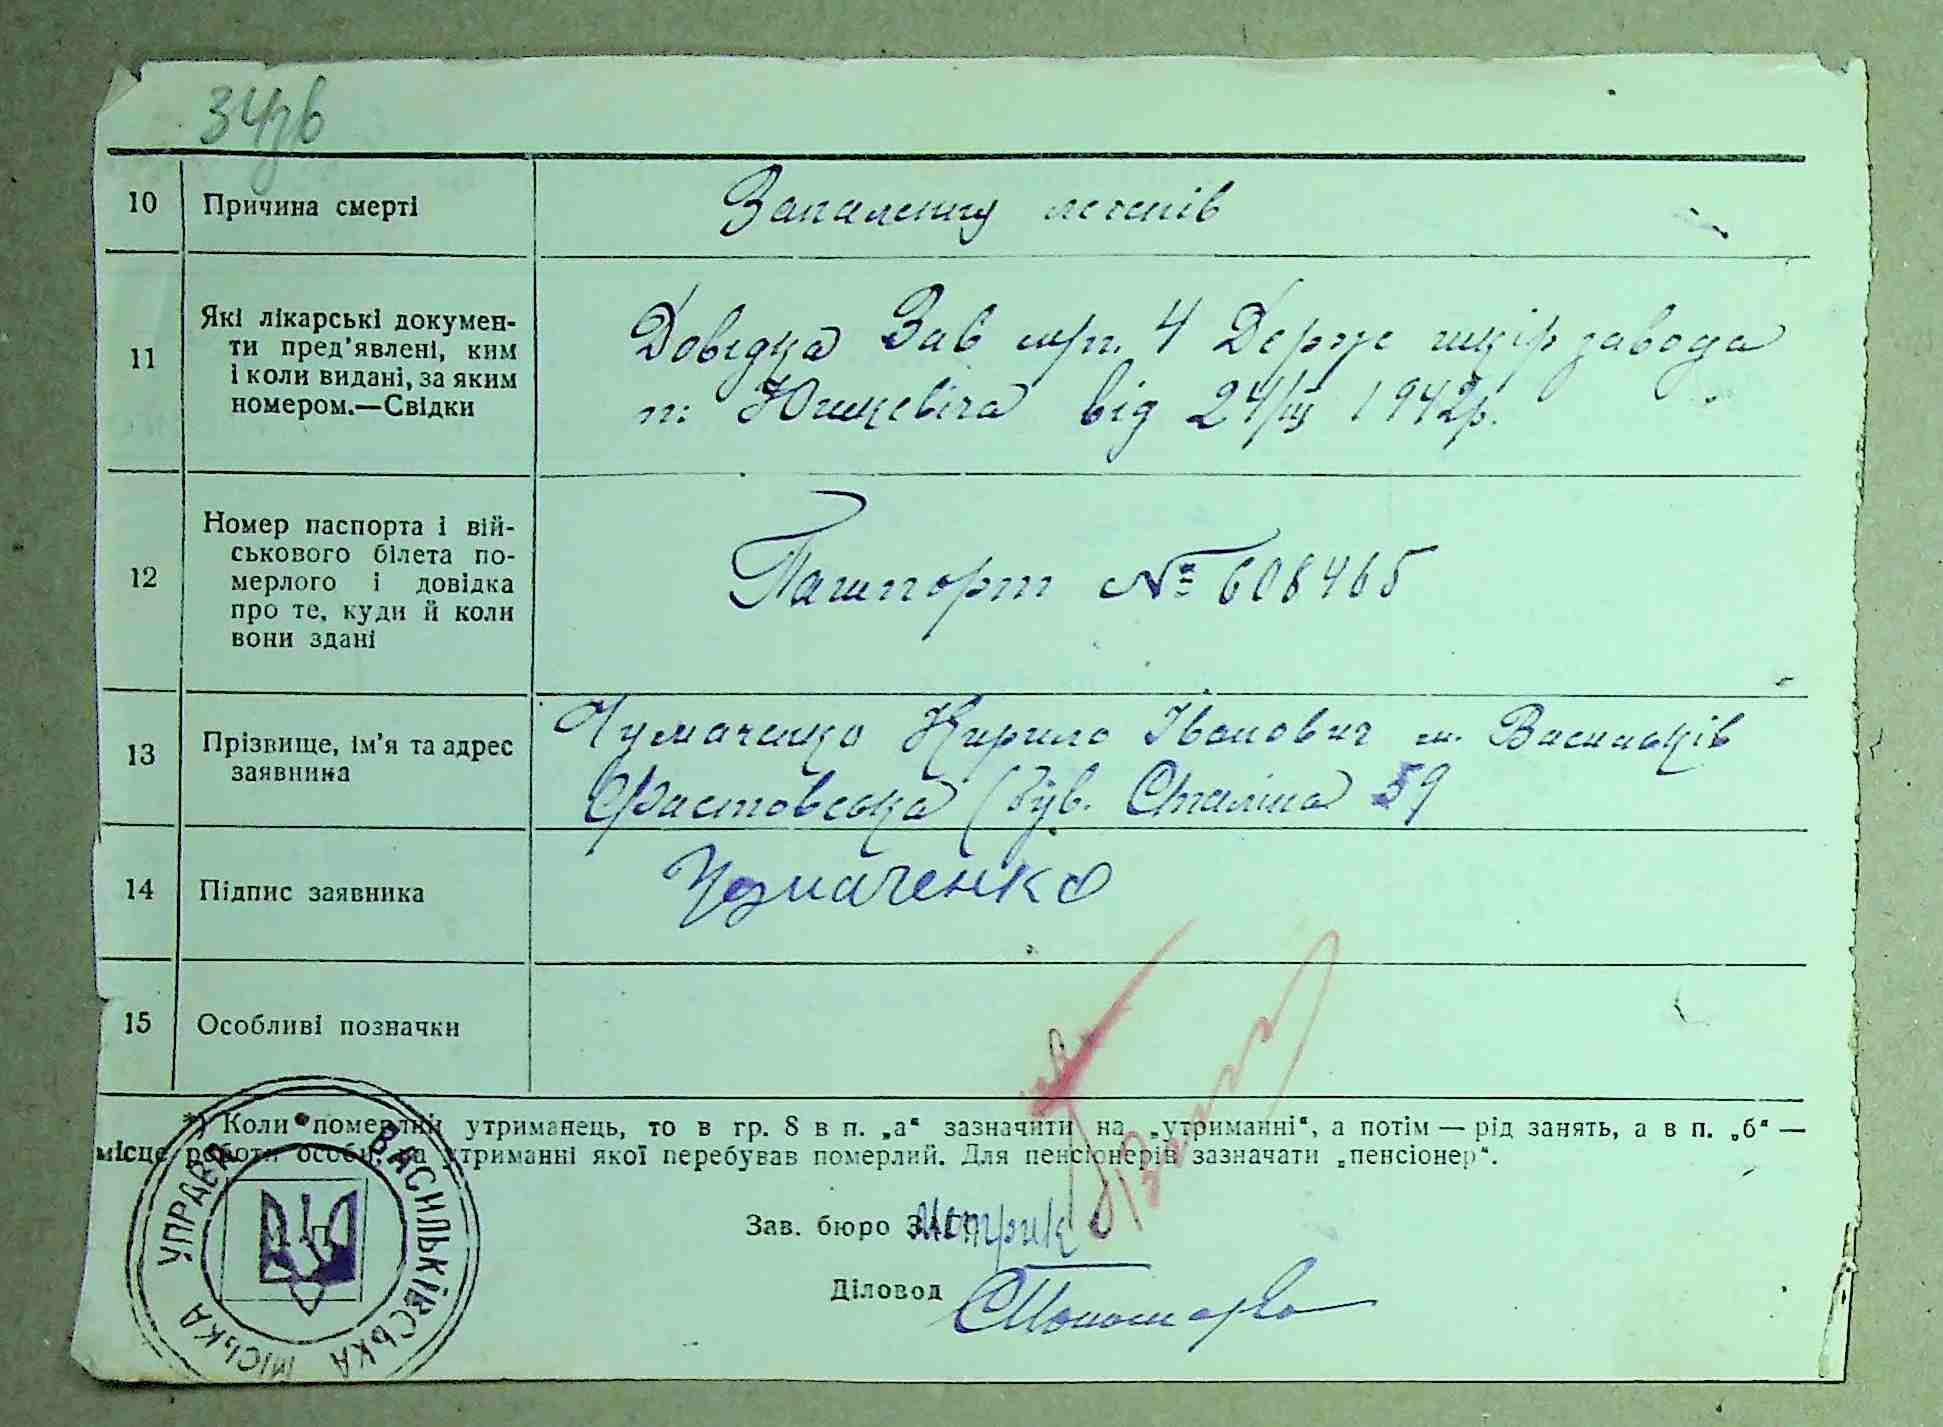 34зв
10 Причина смерті Запаленну легенів
11 Які лікарські докумен-
ти пред’явлені, ким
і коли видані, за яким
номером.—Свідки
Довідка Зав 4 Держ шкір завода
від 24/III 1942р.
12 Номер паспорта і вій-
ськового білета по-
мерлого і довідка
про те, куди й коли
вони здані
Пашпорт № 608465
13 Прізвище, ім’я та адрес
заявника
Чумаченко Кирило Іванович м. Васильків
Фастовська (був. Сталіна 59
14 Підпис заявника Чумаченко
15 Особливі позначки
*) Коли померлий утриманець, то в гр. 8 в п. „а“ зазначити на „утриманні“, а потім — рід занять, а в п. „б“ —
місце роботи особи, на утриманні якої перебував померлий. Для пенсіонерів зазначати „пенсіонер“.
Зав. бюро ЗАГС метрик
Діловод
ВАСИЛЬКІВСЬКА МІСЬКА УПРАВА